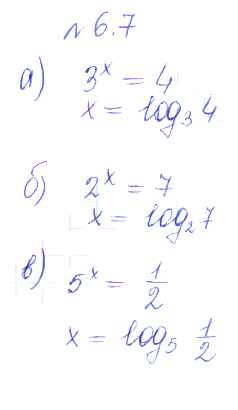 № 6.7
а) 3ˣ = 4
x = log₃ 4
б) 2ˣ = 7
x = log₂ 7
в) 5ˣ = 1/2
x = log₅ 1/2